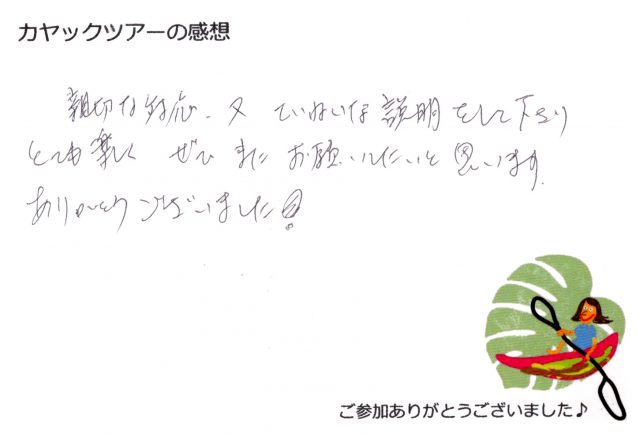 カヤックツアーの感想
親切な対応、又 ていねいな説明をして下さり
とても楽しく ぜひ またお願いしたいと思います。
ありがとうございました!
ご参加ありがとうございました♪